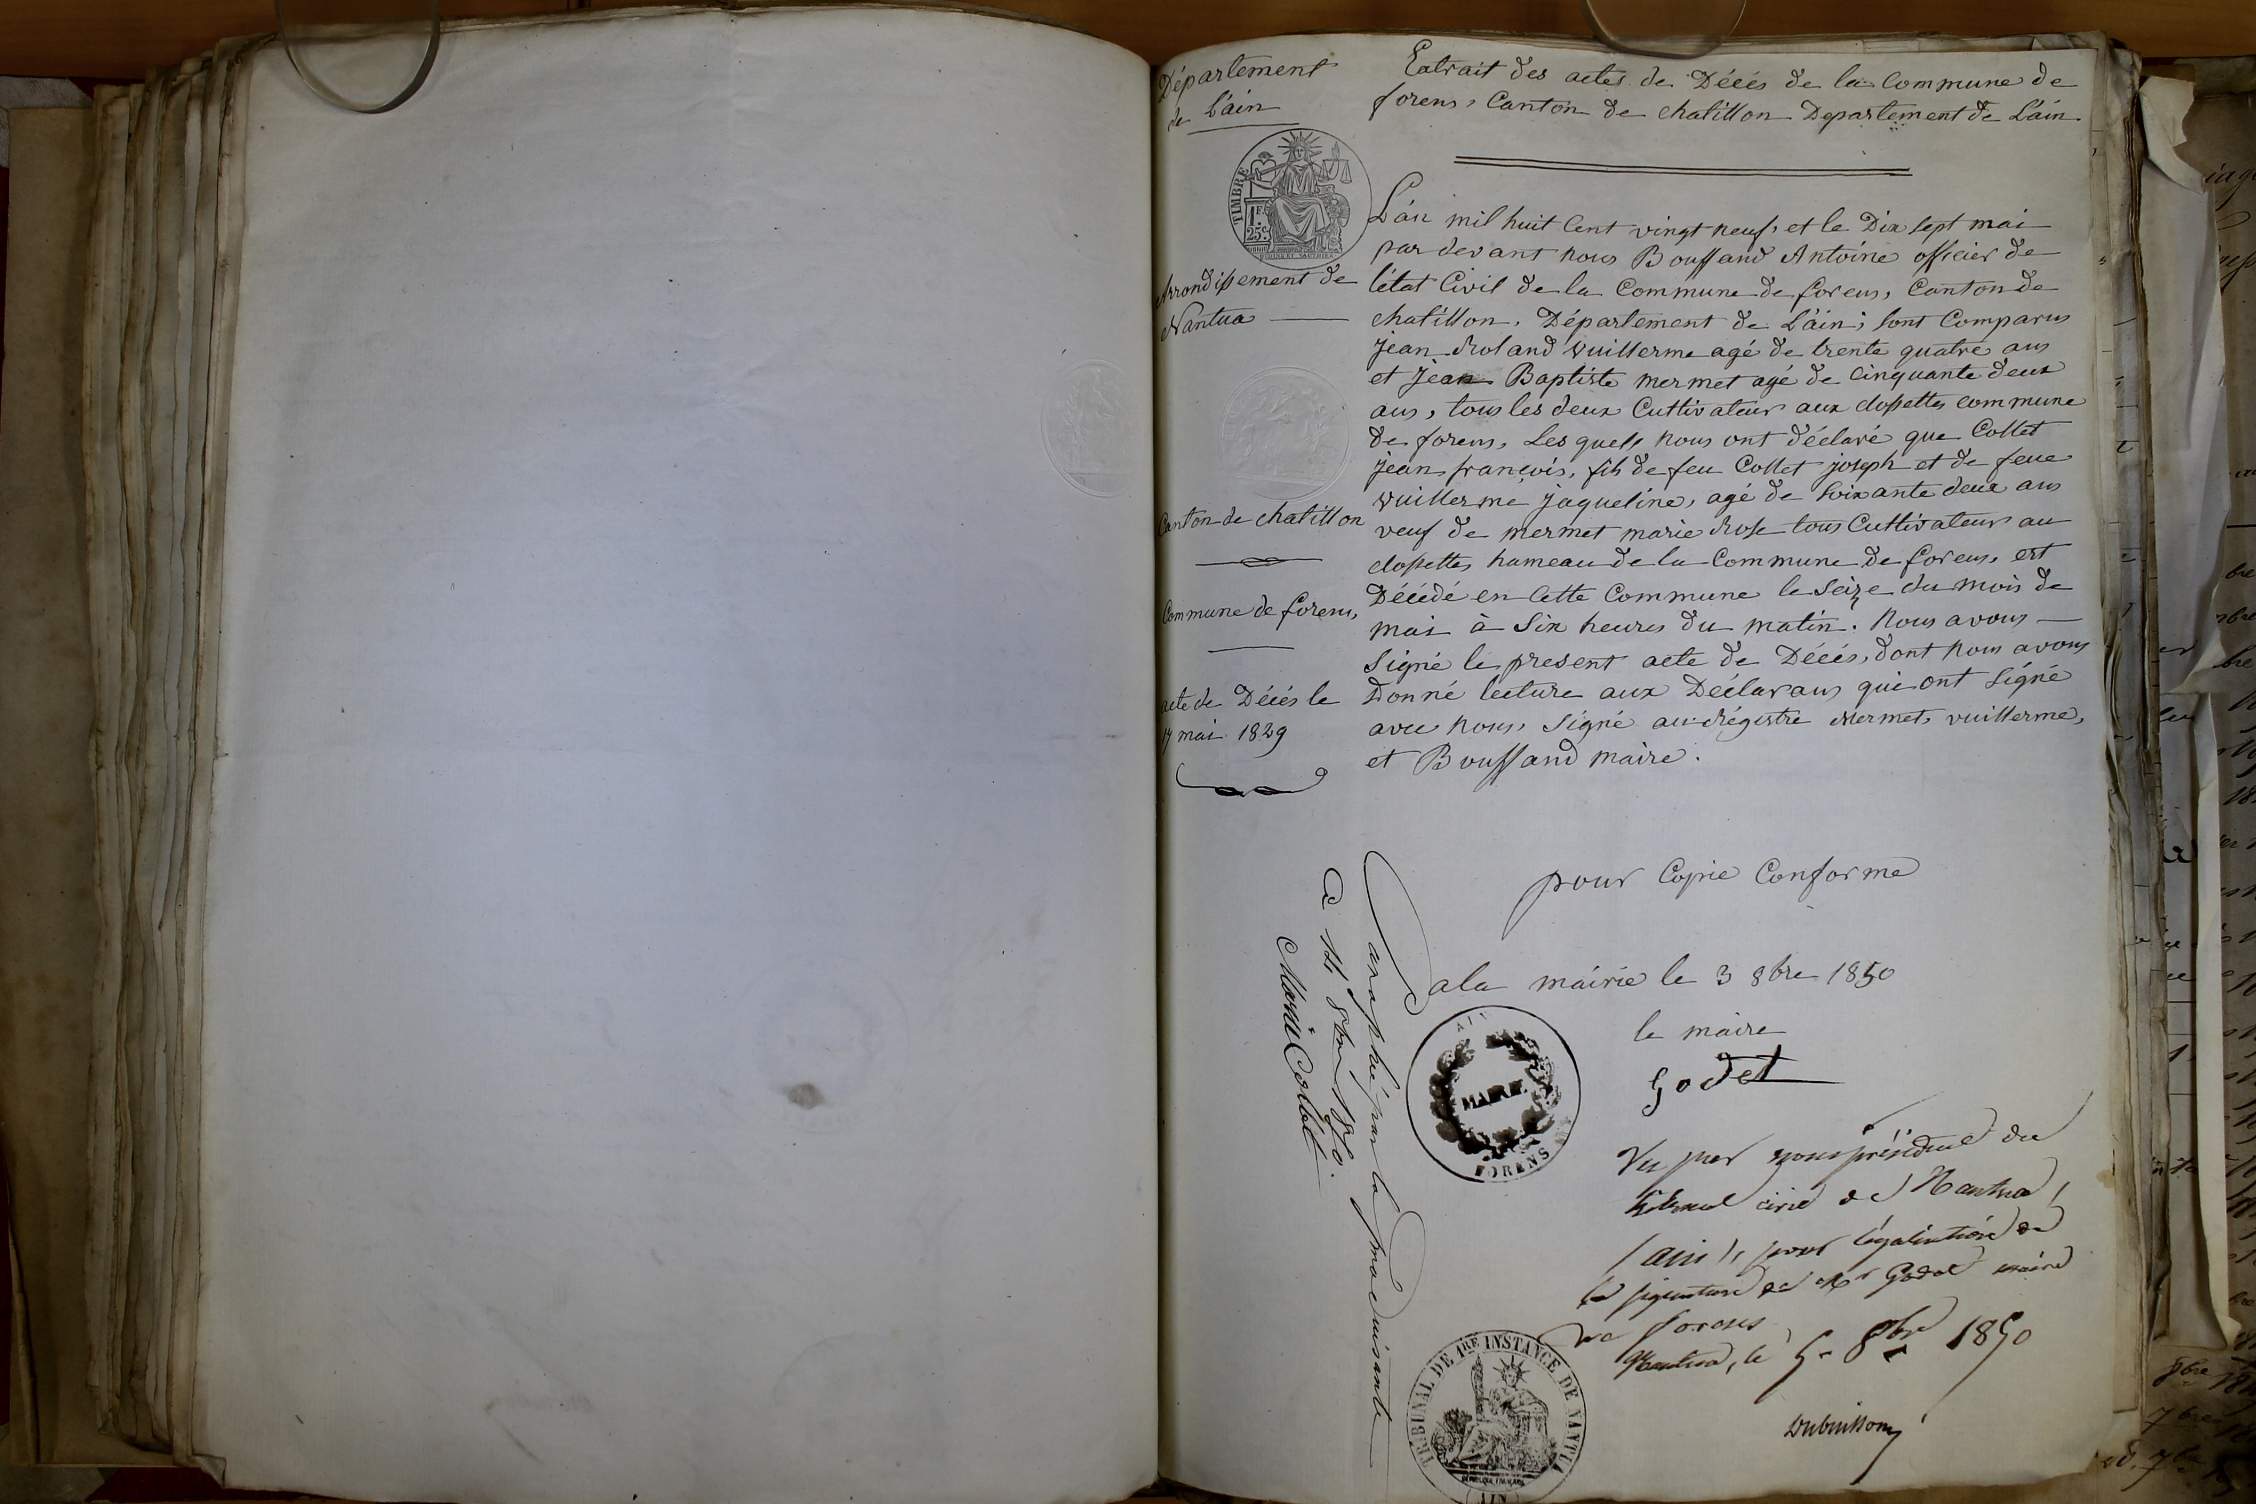 Département
de L'ain
TIMBRE
1 F.
25 C.
Arrondissement de
Nantua
Canton de chatillon
Commune de forens,
acte de Décés le
17 mai 1829
Extrait des actes de Décés de la Commune de
forens, Canton de chatillon Departement de L'ain.
L'an mil huit Cent vingt neuf, et le Dix sept mai
par devant nous Bouffand Antoine officier de
l'état Civil de la Commune de forens, Canton de
chatillon, Département de L'ain; sont Comparus
jean Roland Vuillerme agé de trente quatre ans
et jean Baptiste mermet agé de Cinquante deux
ans, tous les deux Cultivateur aux closettes commune
de forens, Les quels nous ont déclaré que Collet
jean françois, fils de feu Collet joseph et de feue
Vuillerme jaqueline, agé de soixante deux ans
veuf de mermet marie Rose tous Cultivateurs au
closettes hameau de la Commune de forens, est
Décédé en Cette Commune le Seize du mois de
mai à Six heures du matin. Nous avons
Signé le present acte de Décés, dont nous avons
Donné lecture aux Déclarans qui ont Signé
avec nous, Signé au Régistre Mermet, vuillerme,
et Bouffand maire.
pour Copie Conforme
a la mairie le 3 8bre 1850
le maire
Godet
AIN
MAIRE
FORENS
Vu par nous président du
tribunal civil de Nantua
(ain), pour légalisation de
la signature de Mr Godet maire
de forens
Nantua, le 5 8bre 1850
Dubuisson
TRIBUNAL DE 1RE INSTANCE DE NANTUA
(AIN)
Paraphé par la
a 8bre 1850.
Marie Collet